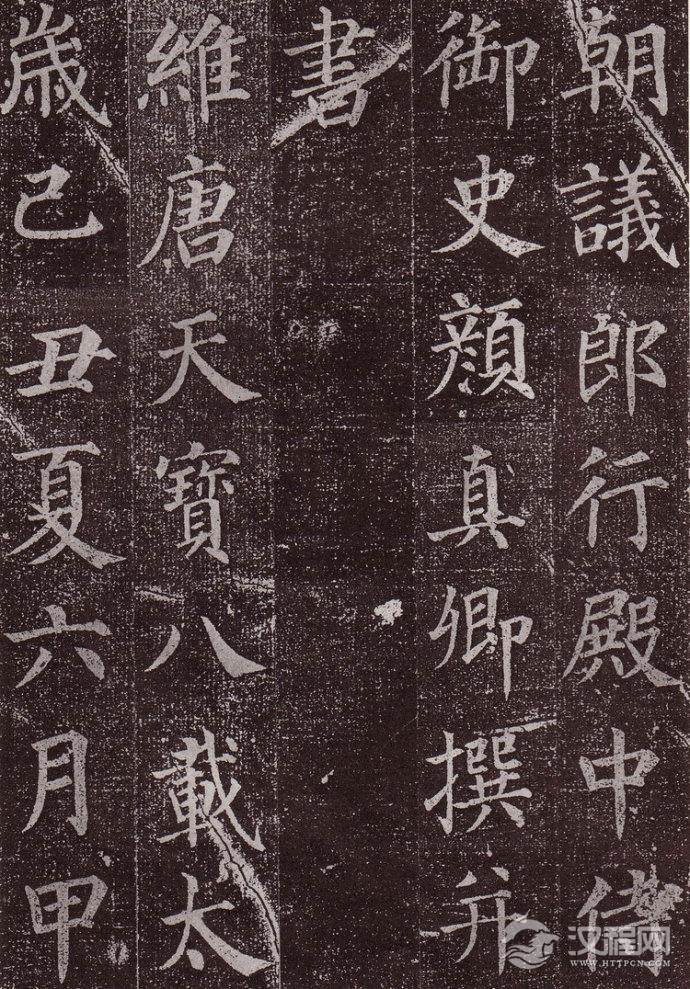 朝議郎行殿中侍
御史顔真卿撰并
書
維唐天寶八載太
歲己丑夏六月甲
汉程网
WWW.HTTPCN.COM